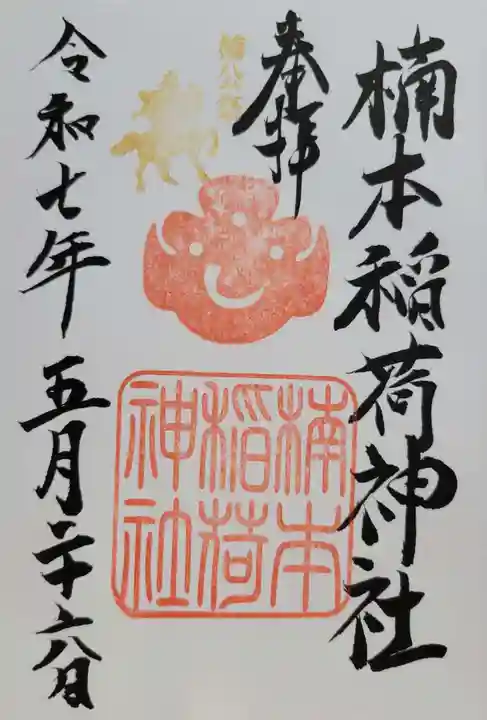 楠本稲荷神社
奉拝
楠本
稲荷
神社
令和七年五月二十六日